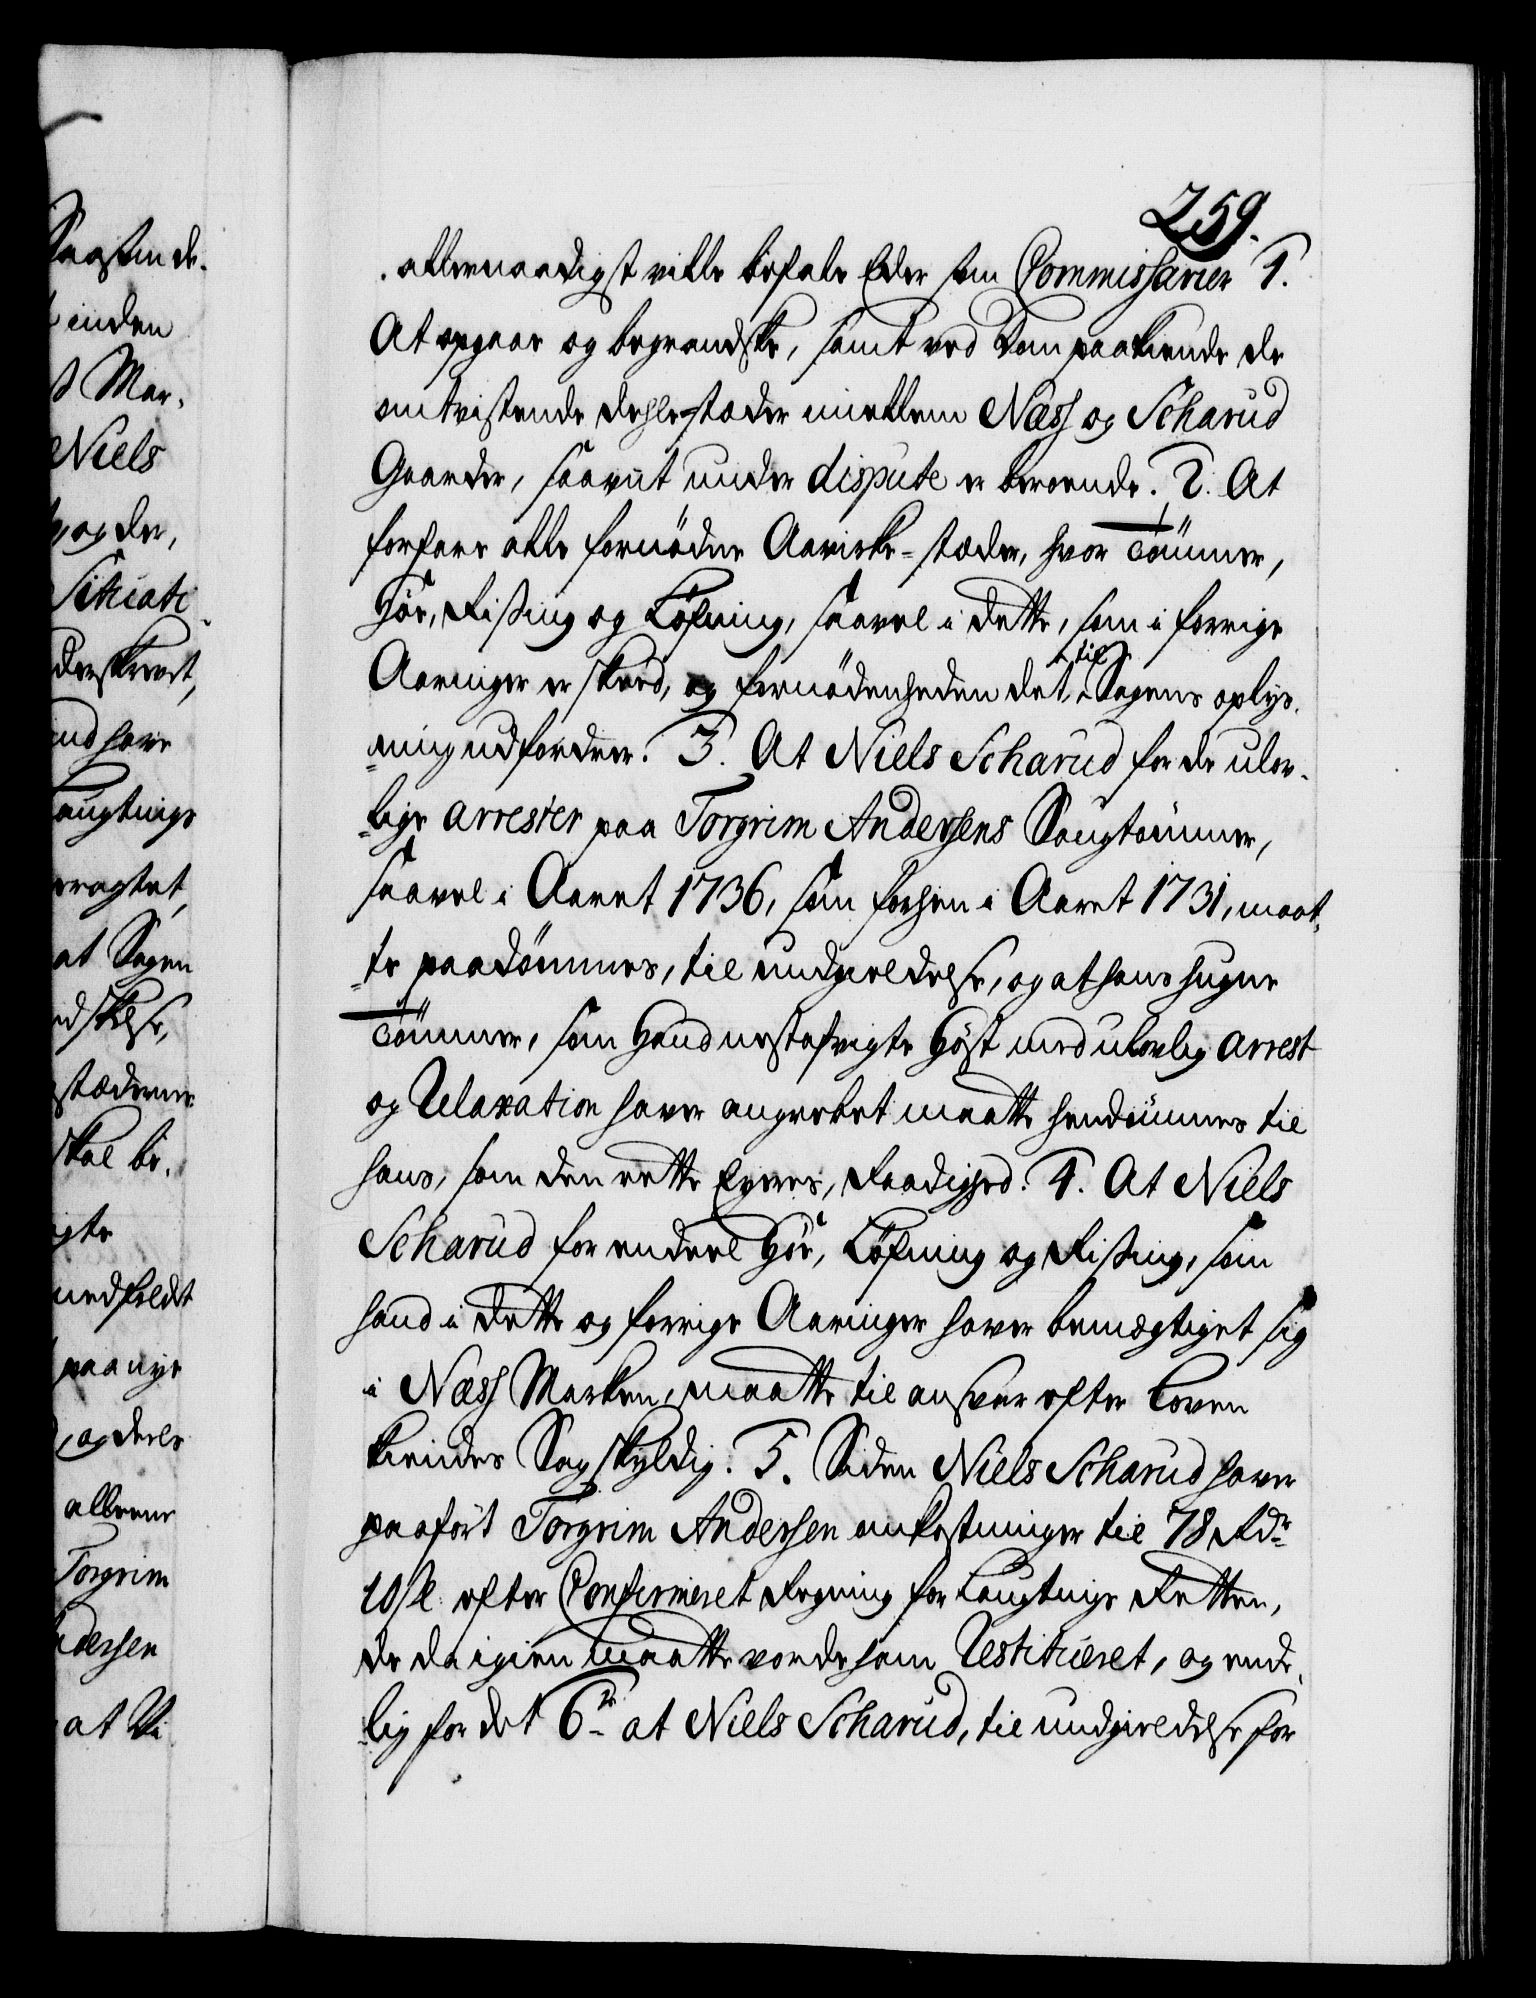 259.
allernaadigst ville befale Eder som Commissarier 1.
At opgaae og begrandske, samt ved Dom paakiende de
omtvistende dehle-stæder imellem Næss og Scharud
Gaarder, saavit under dispute er beroende. 2. At
forfare alle fornødne Aaviske-stæder, hvor Tømmer,
Høe, Rißing og Løfning, saavel i dette, som i forrige
Aaringer er skeed, og fornødenheden det til Sagens oplys-
-ning udfordrer. 3. At Niels Scharud for de ulov-
-lige arrester paa Torgrim Andersens Saugtømmer,
saavel i Aaret 1736, som forhen i Aaret 1731, maat-
-te paadømmes, til undgieldelse, og at hans hugne
Tømmer, som Hand nestafvigte Høst med ulovlig arrest
og Relaxation haver angrebet maatte hendømmes til
hans, som den rette Eyeres, Raadighed. 4. At Niels
Scharud for endeel Høe, Løfning og Rißing, som
hand i dette og forrige Aaringer haver bemægtiget sig
i Næss Marken, maatte til ansvar efter Loven
kiendes Sagskyldig. 5. Siden Niels Scharud haver
paaført Torgrim Andersen omkostninger til 78 Rdr
10 s: efter Confirmeret Regning for Laugtings Retten,
de da igien maatte vorde ham Restitueret, og ende-
-lig for det 6te at Niels Scharud, til undgieldelse for